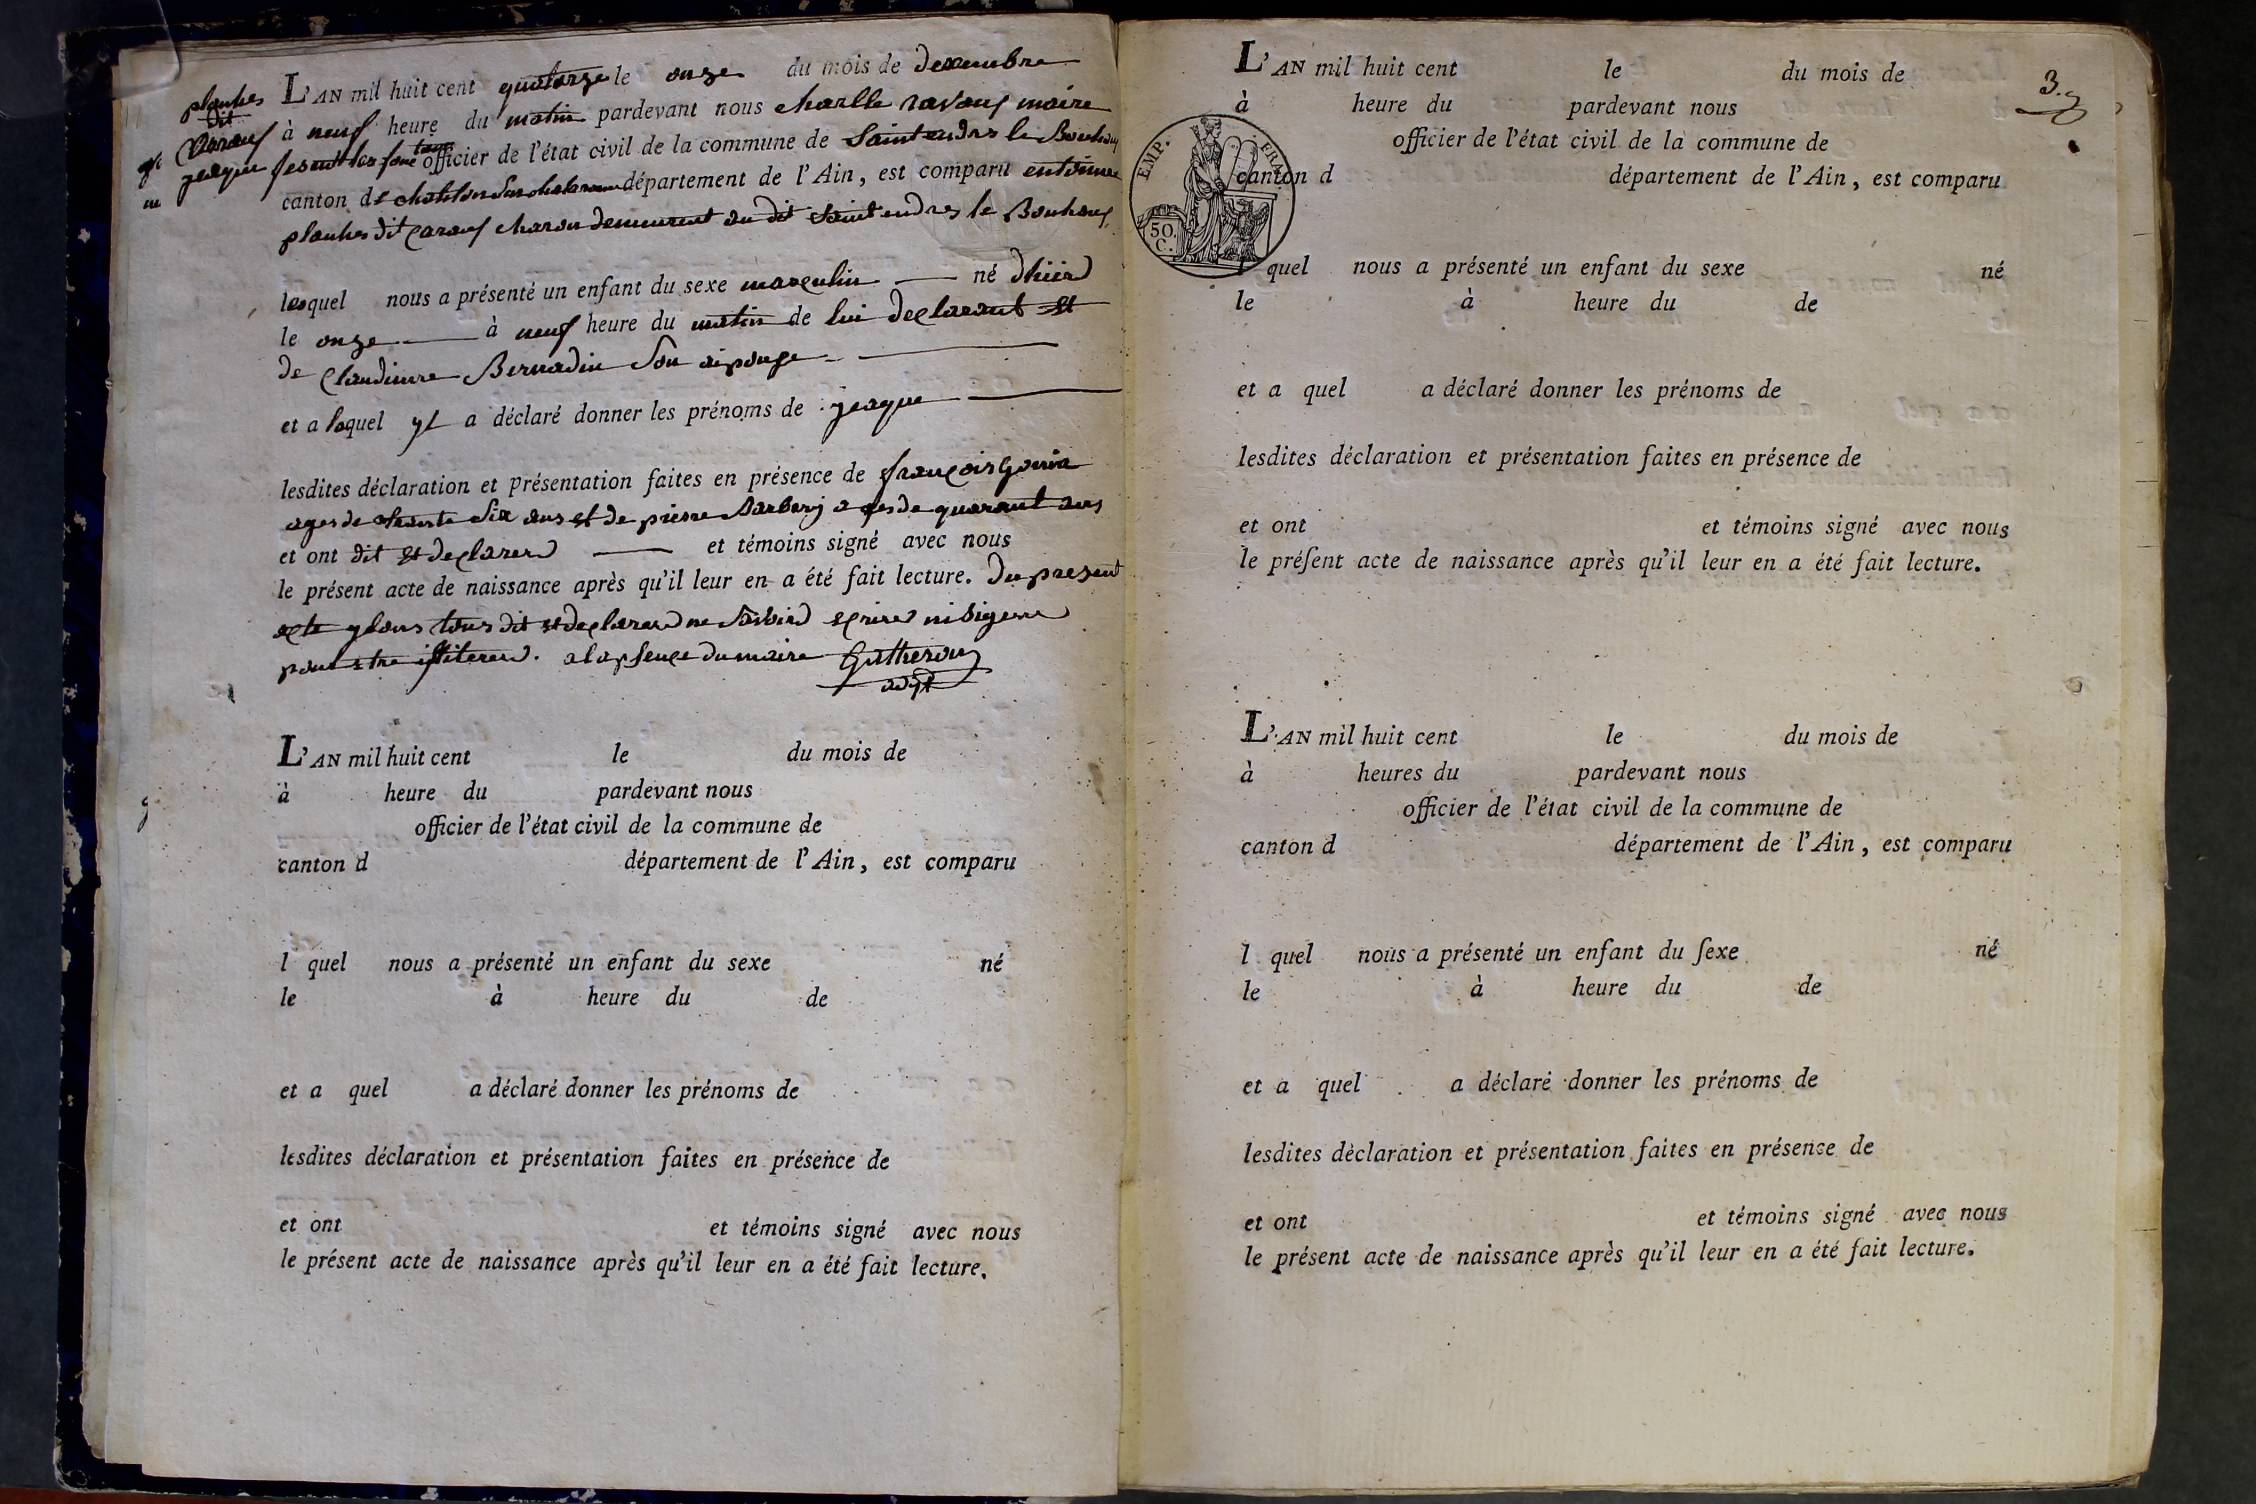 planches
dit
Carauf
jeaque
L'AN mil huit cent quatorze le onze du mois de decembre
à neuf heure du matin pardevant nous charlle ravouf maire
officier de l'état civil de la commune de Saint andres le Bouchouf
canton de chatilon Sur chalaronne département de l'Ain, est comparu entoinne
planches dit Carauf charon demeurent au dit Saint endres le Bouhouf
lesquel nous a présenté un enfant du sexe masculin né dhier
le onze à neuf heure du matin de lui declarant et
de Claudinne Bernadin Son aipouse
et a loquel yl a déclaré donner les prénoms de jeaque
lesdites déclaration et présentation faites en présence de françois Gonin
ages de trante Six ans et de pierre Barberj ages de quarant ans
et ont dit et declarerd et témoins signé avec nous
le présent acte de naissance après qu'il leur en a été fait lecture. Du present
acte ylons tous dit et declarerd ne Savoird ecrire ni Signere
pour etre alapsence du maire Gutheron
adjt
L'AN mil huit cent le du mois de
à heure du pardevant nous
officier de l'état civil de la commune de
canton d département de l'Ain, est comparu
l quel nous a présenté un enfant du sexe né
le à heure du de
et a quel a déclaré donner les prénoms de
lesdites déclaration et présentation faites en présence de
et ont et témoins signé avec nous
le présent acte de naissance après qu'il leur en a été fait lecture.
3.
L'AN mil huit cent le du mois de
à heure du pardevant nous
officier de l'état civil de la commune de
canton d département de l'Ain, est comparu
EMP. FRAN
50.
C.
l quel nous a présenté un enfant du sexe né
le à heure du de
et a quel a déclaré donner les prénoms de
lesdites déclaration et présentation faites en présence de
et ont et témoins signé avec nous
le préſent acte de naissance après qu'il leur en a été fait lecture.
L'AN mil huit cent le du mois de
à heures du pardevant nous
officier de l'état civil de la commune de
canton d département de l'Ain, est comparu
l quel nous a présenté un enfant du ſexe né
le à heure du de
et a quel a déclaré donner les prénoms de
lesdites dèclaration et présentation faites en présence de
et ont et témoins signé avec nous
le présent acte de naissance après qu'il leur en a été fait lecture.